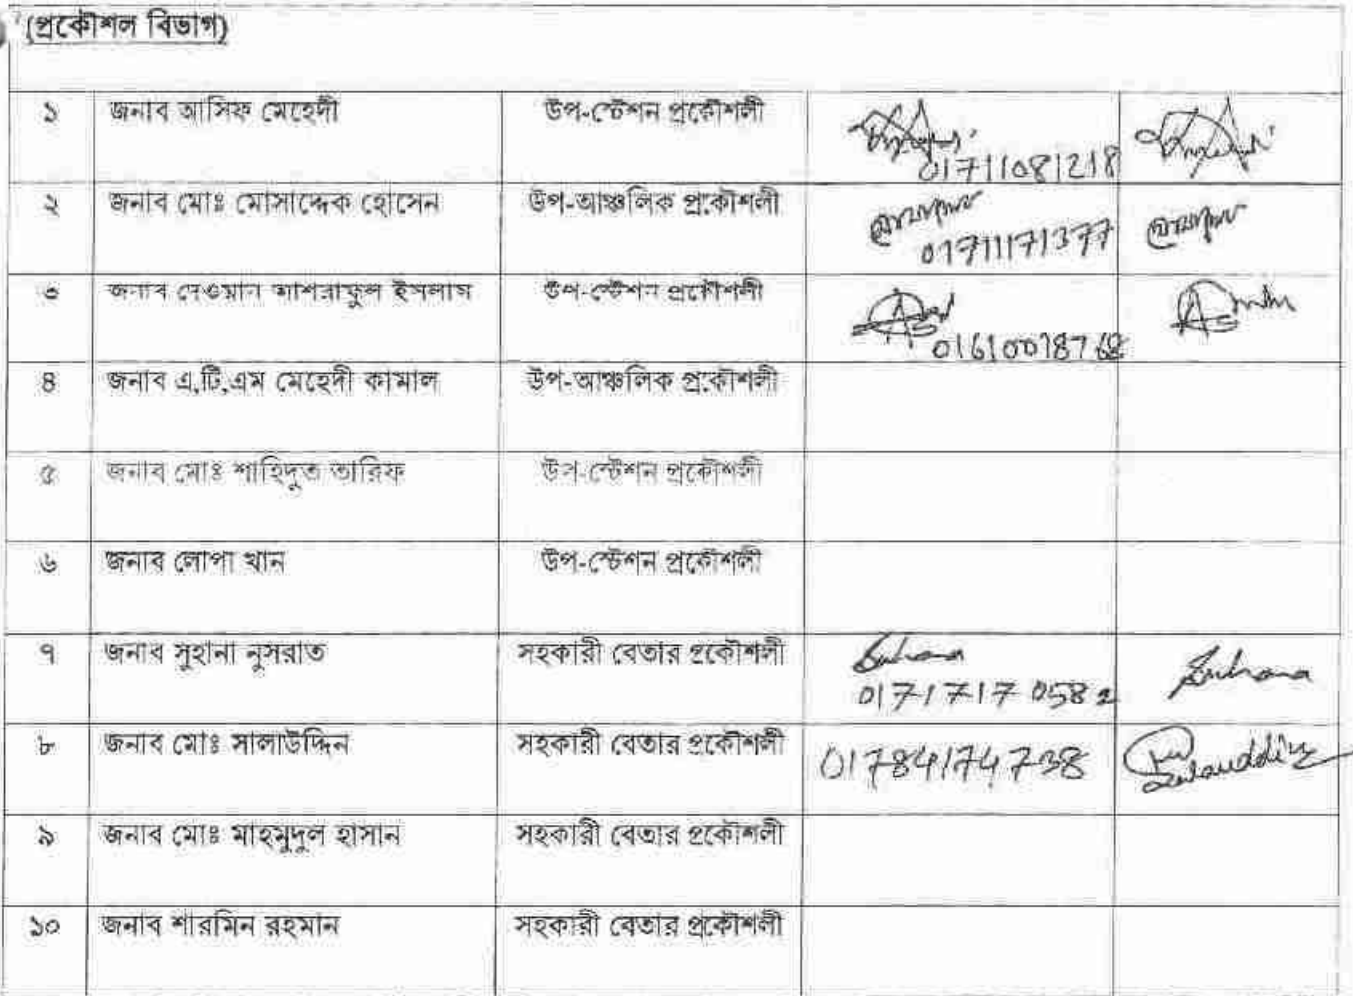 (প্রকৌশল বিভাগ)
১ জনাব আসিফ মেহেদী উপ-স্টেশন প্রকৌশলী
01711081218
২ জনাব মোঃ মোসাদ্দেক হোসেন উপ-আঞ্চলিক প্রকৌশলী
01711171377
৩ জনাব দেওয়ান আশরাফুল ইসলাম উপ-স্টেশন প্রকৌশলী
৪ জনাব এ,টি,এম মেহেদী কামাল উপ-আঞ্চলিক প্রকৌশলী
৫ জনাব মোঃ শাহিদুত তারিফ উপ-স্টেশন প্রকৌশলী
৬ জনাব লোপা খান উপ-স্টেশন প্রকৌশলী
৭ জনাব সুহানা নুসরাত সহকারী বেতার প্রকৌশলী Suhana Suhana
01717170582
৮ জনাব মোঃ সালাউদ্দিন সহকারী বেতার প্রকৌশলী 01784174738
Salauddin
৯ জনাব মোঃ মাহমুদুল হাসান সহকারী বেতার প্রকৌশলী
১০ জনাব শারমিন রহমান সহকারী বেতার প্রকৌশলী